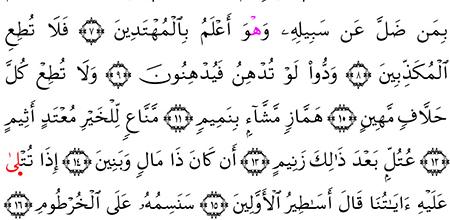 بِمَن ضَلَّ عَن سَبِيلِهِۦ وَهْوَ أَعْلَمُ بِالْمُهْتَدِينَ ﴿٧﴾ فَلَا تُطِعِ
الْمُكَذِّبِينَ ﴿٨﴾ وَدُّوا۟ لَوْ تُدْهِنُ فَيُدْهِنُونَ ﴿٩﴾ وَلَا تُطِعْ كُلَّ
حَلَّافٍ مَّهِينٍ ﴿١٠﴾ هَمَّازٍ مَّشَّآءٍۭ بِنَمِيمٍ ﴿١١﴾ مَّنَّاعٍ لِّلْخَيْرِ مُعْتَدٍ أَثِيمٍ
﴿١٢﴾ عُتُلٍّۭ بَعْدَ ذَٰلِكَ زَنِيمٍ ﴿١٣﴾ أَن كَانَ ذَا مَالٍ وَبَنِينَ ﴿١٤﴾ إِذَا تُتْلَىٰ
عَلَيْهِ ءَايَـٰتُنَا قَالَ أَسَـٰطِيرُ الْأَوَّلِينَ ﴿١٥﴾ سَنَسِمُهُۥ عَلَى الْخُرْطُومِ ﴿١٦﴾